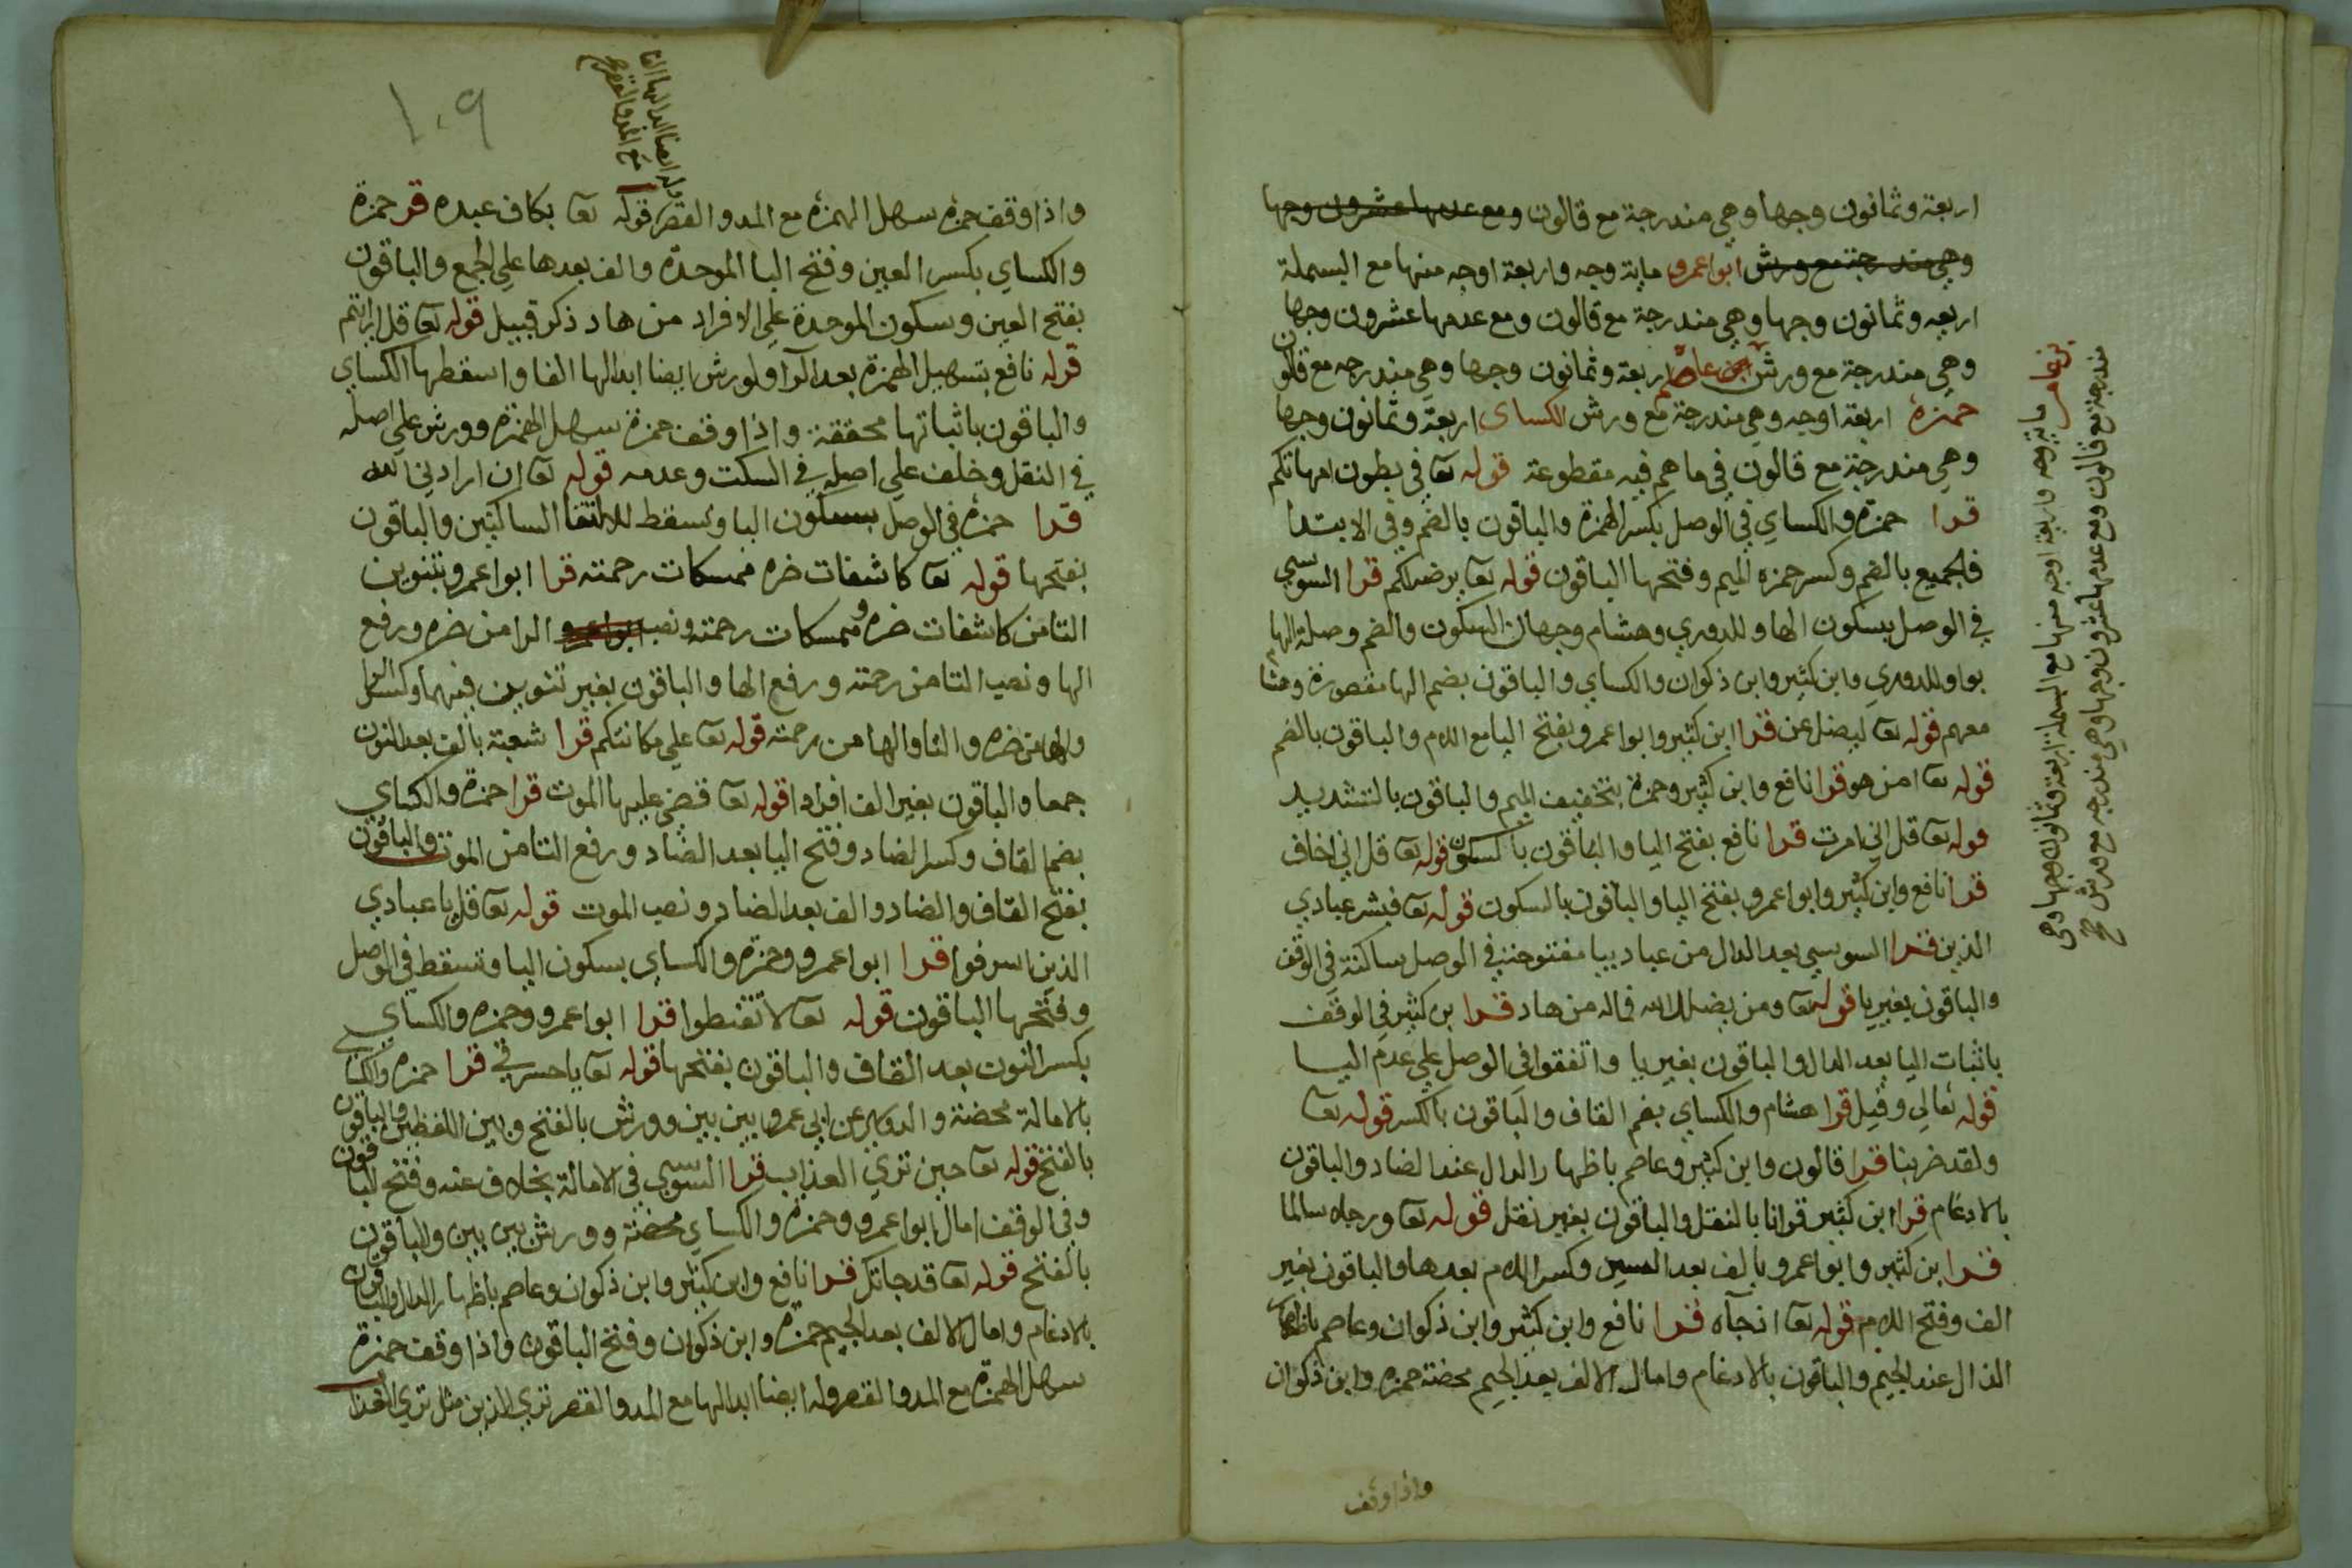 اربعة وثمانون وجها وهي مندرجة مع قالون ومع عدمها عشرون وجها
وهي مندرجة مع ورش ابوا عمرو ماية وجه واربعة اوجه منها مع البسملة
اربعه وثمانون وجها وهي مندرجة مع قالون ومع عدمها عشرون وجها
وهي مندرجة مع ورش عاصم اربعة وثمانون وجها وهي مندرجه مع قالون
حمزة اربعة اوجه وهي مندرجة مع ورش الكساى اربعة وثمانون وجها
وهي مندرجة مع قالون في ما هم فيه مقطوعة قوله تعا في بطون امهاتكم
قرا حمزة والكساي في الوصل بكسر الهمزة والباقون بالضم وفي الابتدا
فالجميع بالضم وكسر حمزه الميم وفتحها الباقون قوله تعا يرضه لكم قرا السوسي
في الوصل بسكون الها وللدوري وهشام وجهان السكون والضم وصلة الها
بواو للدوري وابن كثير وابن ذكوان والكساي والباقون بضم الها مقصورة وهشا
معهم قوله تعا ليضل عن قرا ابن كثير وابوا عمرو بفتح اليا مع اللام والباقون بالضم
قوله تعا امن هو قرا نافع وابن كثير وحمزة بتخفيف الميم والباقون بالتشديد
قوله تعا قل اني امرت قرا نافع بفتح اليا والباقون بالسكون قوله تعا قل اني اخاف
قرا نافع وابن كثير وابوا عمرو بفتح اليا والباقون بالسكون قوله تعا فبشر عبادي
الذين قرا السوسي بعد الدال من عباد بيا مفتوحة في الوصل ساكنة في الوقف
والباقون بغير يا قوله تعا ومن يضلل الله فماله من هاد قرا بن كثير في الوقف
باثبات اليا بعد الدال والباقون بغير يا واتفقوا في الوصل علي عدم اليا
قوله تعالي وقيل قرا هشام والكساي بضم القاف والباقون بالكسر قوله تعا
ولقد ضربنا قرا قالون وابن كثير وعاصم باظهار الدال عند الضاد والباقون
بالادغام قرا ابن كثير قرانا بالنقل والباقون بغير نقل قوله تعا ورجلا سالما
قرا ابن كثير وابوا عمرو بالف بعد السين وكسر اللام بعدها والباقون بغير
الف وفتح اللام قوله تعا اذ جآه قرا نافع وابن كثير وابن ذكوان وعاصم باظهار
الذال عند الجيم والباقون بالادغام وامال الالف بعد الجيم محضة حمزه وابن ذكوان
واذا وقف
بن عامر ماية وجه واربعة اوجه منها مع البسملة اربعة وثمانون وجها وهي
مندرجة مع قالون ومع عدمها عشرون وجها وهي مندرجه مع ورش صح
١٠٩
وله ايضا ابدالها الفا
مع المد والقصر صح
واذا وقف حمزه سهل الهمزة مع المد والقصر قوله تعا بكاف عبده قر حمزة
والكساي بكسر العين وفتح البا الموحدة والف بعدها علي الجمع والباقون
بفتح العين وسكون الموحدة علي الافراد من هاد ذكر قبيل قوله تعا قل ارايتم
قوله نافع بتسهيل الهمزة بعد الرا ولورش ايضا ابدالها الفا واسقطها الكساي
والباقون باثباتها محققة واذا وقف حمزة سهل الهمزة وورش علي اصله
في النقل وخلف علي اصله في السكت وعدمه قوله تعا ان ارادني الله
قرا حمزة في الوصل بسكون اليا وتسقط لالتقا الساكنين والباقون
بفتحها قوله تعا كاشفات ضره ممسكات رحمته قرا ابوا عمرو بتنوين
التا من كاشفات ضره وممسكات رحمته ونصب ابوا عمرو الرا من ضره ورفع
الها ونصب التا من رحمته ورفع الها والباقون بغير تنوين فيهما وكسر الرا
والها من ضره والتا والها من رحمته قوله تعا علي مكانتكم قرا شعبة بالف بعد النون
جمعا والباقون بغير الف افرادا قوله تعا قضي عليها الموت قرا حمزة والكساي
بضم القاف وكسر الضاد وفتح اليا بعد الضاد ورفع التا من الموت والباقون
بفتح القاف والضاد والف بعد الضاد ونصب الموت قوله تعا قل يا عبادي
الذين اسرفوا قرا ابوا عمرو وحمزة والكساي بسكون اليا وتسقط في الوصل
وفتحها الباقون قوله تعا لا تقنطوا قرا ابوا عمرو وحمزه والكساي
بكسر النون بعد القاف والباقون بفتحها قوله تعا يا حسرتي قرا حمزه والكساي
بالامالة محضة والدوري عن ابي عمرو بين بين وورش بالفتح وبين اللفظين والباقون
بالفتح قوله تعا حين تري العذاب قرا السوسي في الامالة بخلاف عنه وفتح الباقون
وفي الوقف امال ابوا عمرو وحمزة والكساي محضة وورش بين بين والباقون
بالفتح قوله تعا قد جاتك قرا نافع وابن كثير وابن ذكوان وعاصم باظهار الدال والباقون
بالادغام وامال الالف بعد الجيم حمزة وابن ذكوان وفتح الباقون واذا وقف حمزة
سهل الهمزة مع المد والقصر وله ايضا ابدالها مع المد والقصر تري الذين مثل تري العذا